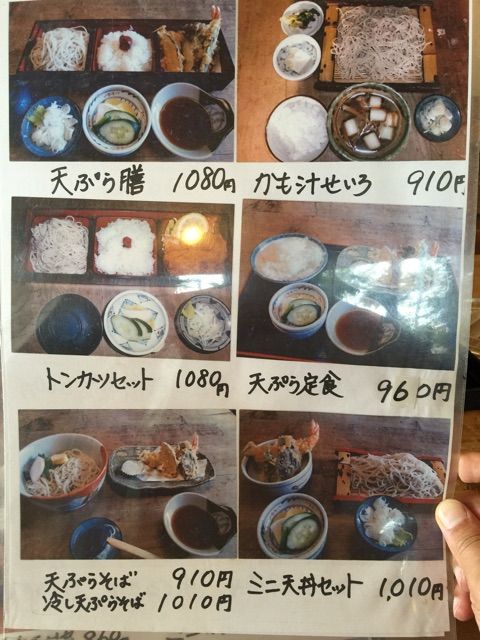 天ぷら膳 1080円
かも汁せいろ 910円
トンカツセット 1080円
天ぷら定食 960円
天ぷらそば 910円
冷し天ぷらそば 1010円
ミニ天丼セット 1,010円